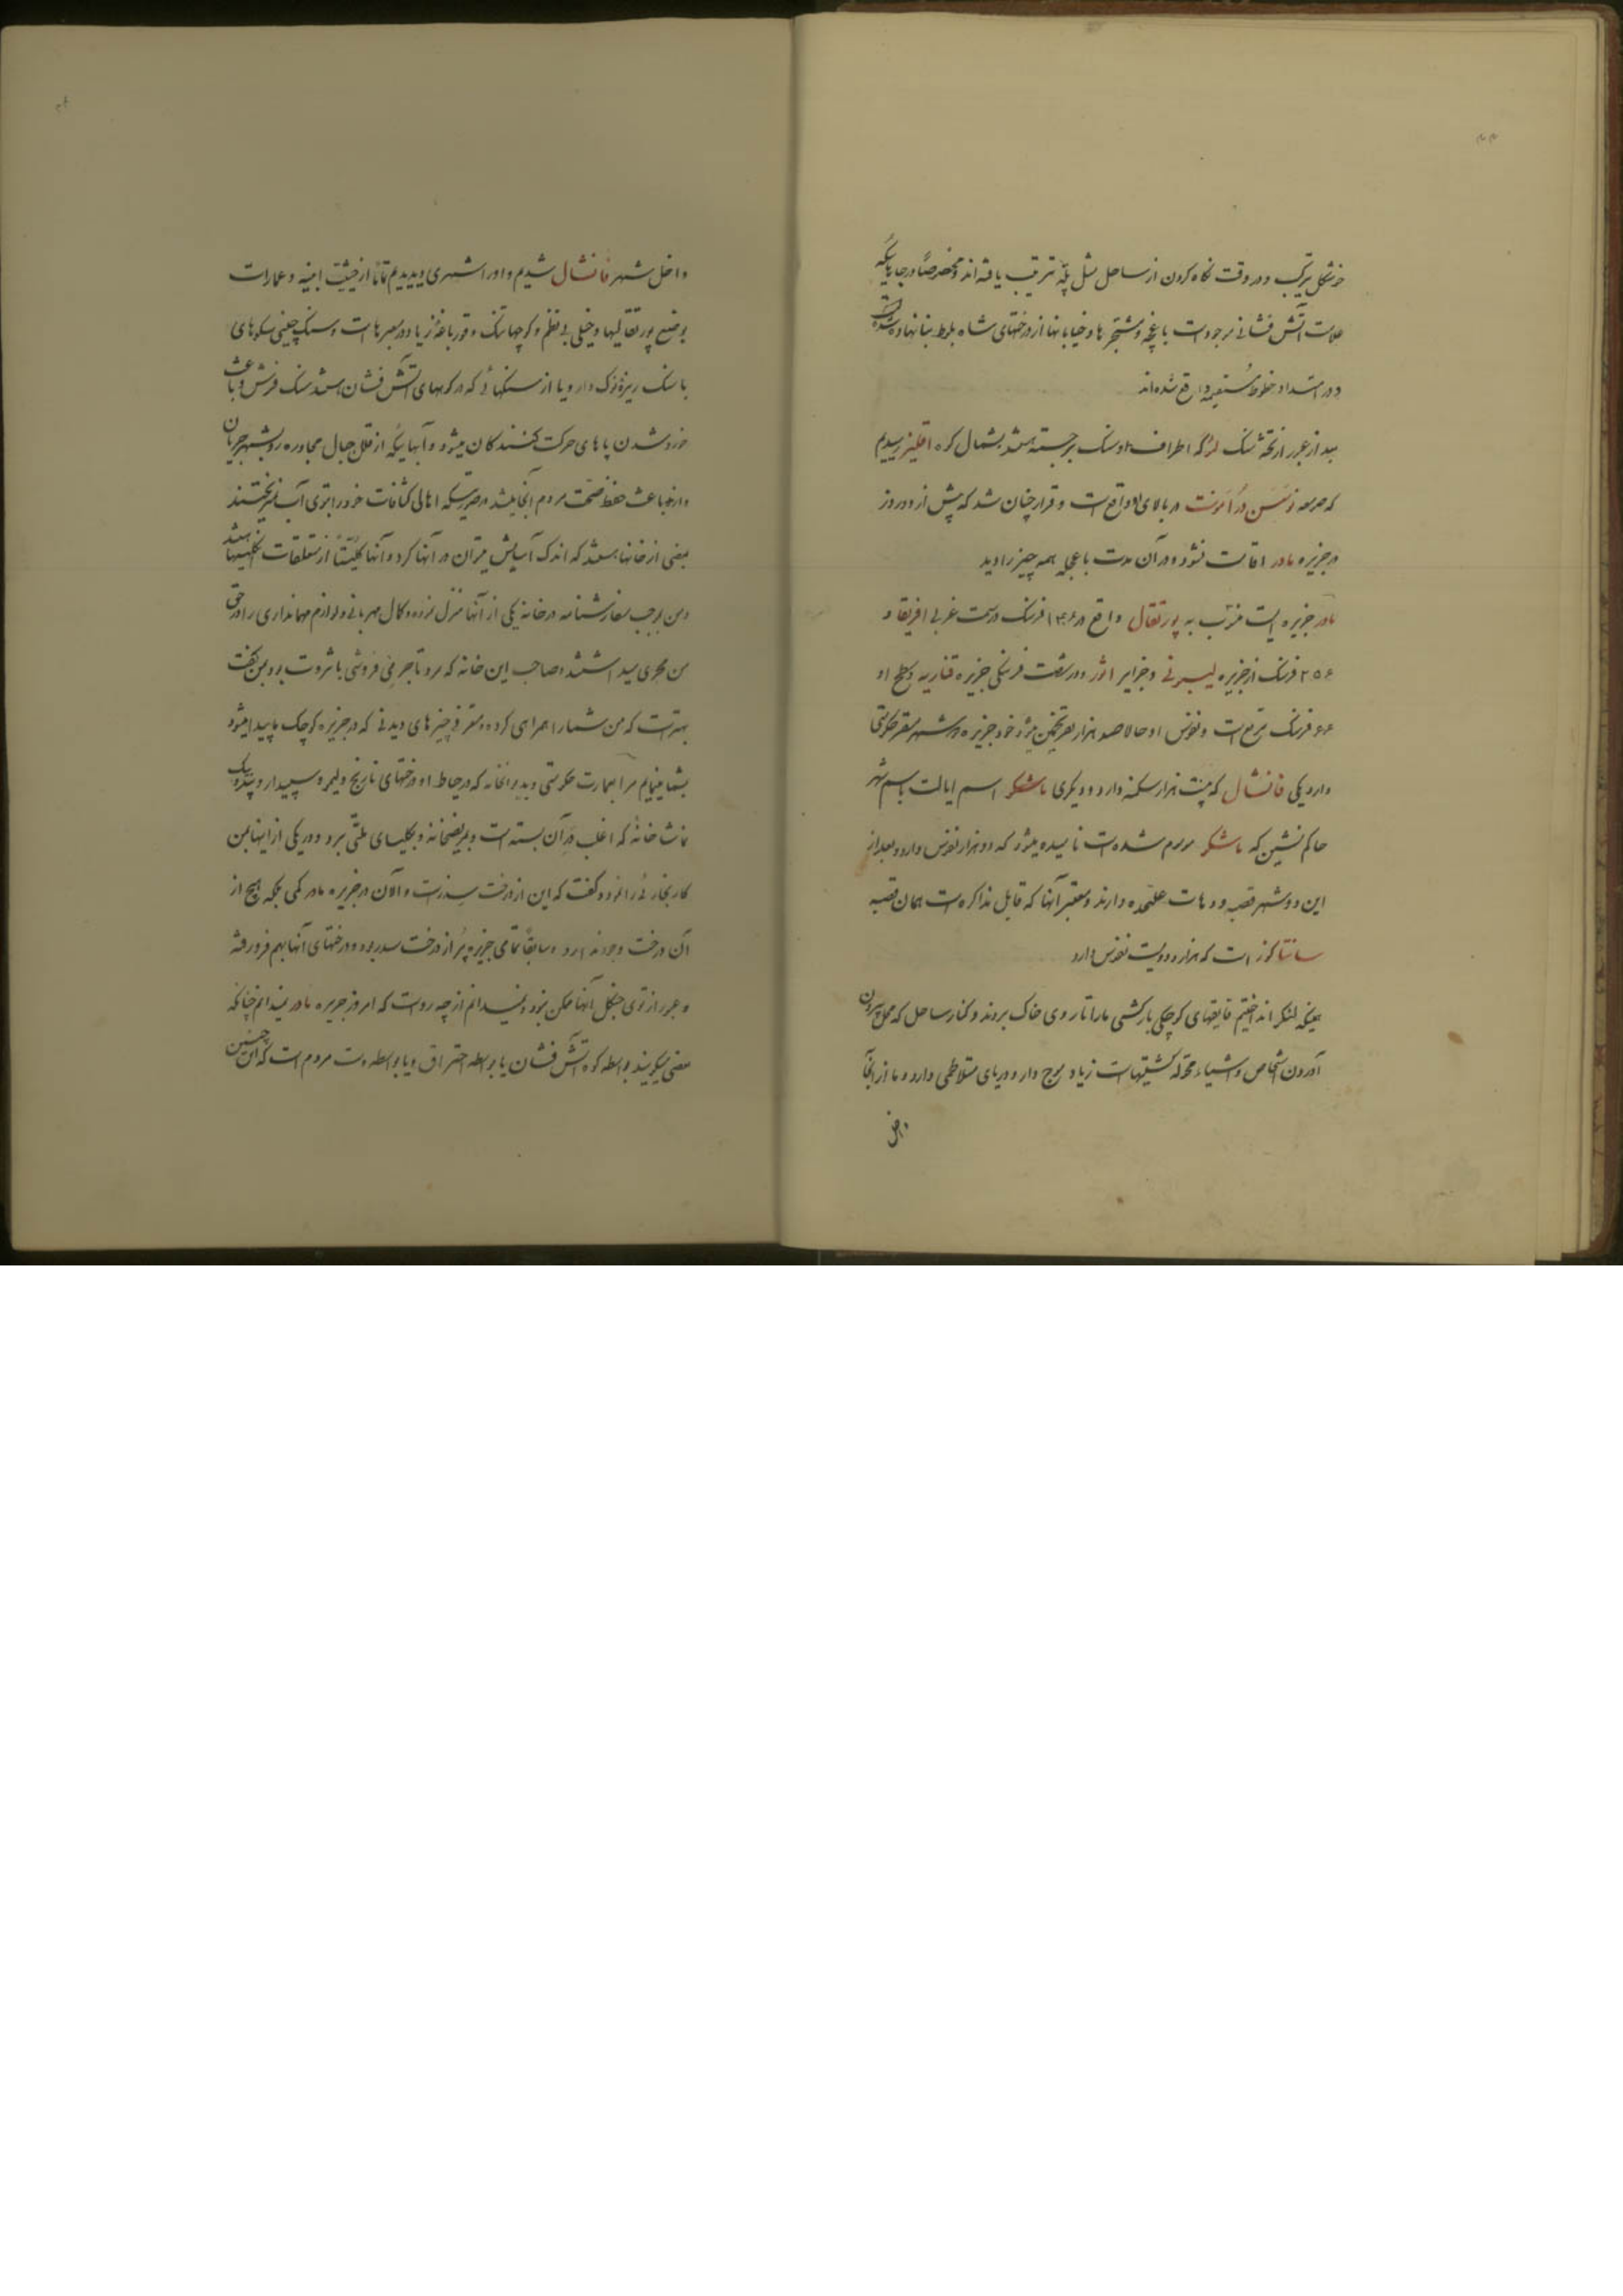 خوشگل بترکیب و در وقت نگاه کردن از ساحل مثل پله ترتیب یافته‌اند و مخصوصاً در جاهائیکه
علامت آتش فشانی موجود است باغچه و مشجرها و خیابانها از درختهای شاه بلوط بنا نهاده شده است
و در امتداد خطوط مستقیمه واقع شده‌اند
بعد از عبور از تخته سنگ که اطراف او سنگ برجسته هستند بشمال کوه رسیدیم
که در بالای او واقع است و قرار چنان شد که بیش از دو روز
در جزیره مادر اقامت نشود و در آن مدت با عجله همه چیز را دید
مادر جزیره ایست به پورتقال واقع در فرسنگ در سمت غربی افریقا و
فرسنگ از جزیره و جزایر و در شصت فرسنگی جزیره قناریه و سطح او
۶۶ فرسنگ مربع است و نفوس او حالا صد هزار نفر تخمین میشود خود جزیره دو شهر مقر حکومتی
دارد یکی فانشال که بیست هزار سکنه دارد و دیگری ماشکو اسم ایالت باسم شهر
حاکم نشین که ماشکو موسوم شده است نامیده میشود که دو هزار نفوس دارد و بعد از
این دو شهر قصبه و دهات علیحده دارند و معتبر آنها که قابل مذاکره است همان قصبه
سانتا کوز است که هزار و دویست نفوس دارد
همینکه لنگر انداختیم قایقهای کوچکی بارکشی ما را تا روی خاک بردند و کنار ساحل که محل بیرون
آوردن اشخاص و اشیاء محموله کشتیهاست زیاد موج دار و دریای متلاطمی دارد و ما از آنجا
داخل
داخل شهر فانشال شدیم و او را شهری دیدیم تماماً از حیثیت ابنیه و عمارات
بوضع پورتقالیها و خیلی بی نظم و کوچها تنگ و قورباغه زیاد در معبرهاست و سنگ چینی سکوهای
با سنگ ریزه نوک دار و یا از سنگهائی که در کوههای آتش فشان هستند سنگ فرش و باعث
خورد شدن پاهای حرکت کنندگان میشود و آبهائیکه از قلل جبال مجاوره رو بشهر جریان
دارند باعث حفظ صحت مردم آنجا میشد در صورتیکه اهالی کثافات خود را توی آب نمیریختند
بعضی از خانها هستند که اندک آسایش میتوان در آنها کرد و آنها کلیتاً از متعلقات انگلیسها هستند
و من بموجب سفارشنامه در خانه یکی از آنها منزل نموده و کمال مهربانی و لوازم مهمانداری را در حق
من مجری میداشتند و صاحب این خانه که مرد تاجر می فروشی با ثروت بود بمن گفت
بهتر است که من شما را همراهی کرده و معرفی چیزهای دیدنی که در جزیره کوچک ما پیدا میشود
بشما بنمایم مرا بعمارت حکومتی و بدیوانخانه که در حیاط او درختهای نارنج و لیمو و سپیدار و
تماشا خانهٔ که اغلب در آن بسته است و بمریضخانه و بکلیسای ملتی برد و در یکی از اینها بمن
کار نجاری را نمود و گفت که این از درخت سدر است و الآن در جزیره مادر کمی بلکه هیچ از
آن درخت وجود ندارد و سابقاً تمامی جزیره پر از درخت سدر بود و درختهای آنها بهم فرو رفته
و عبور از توی جنگل آنها ممکن نبود و نمیدانم از چه روست که امروز جزیره مادر نمیدانم چنانکه
بعضی میگویند بواسطه کوه آتش فشان یا بواسطه احتراق و یا بواسطه دست مردم است که این چنین